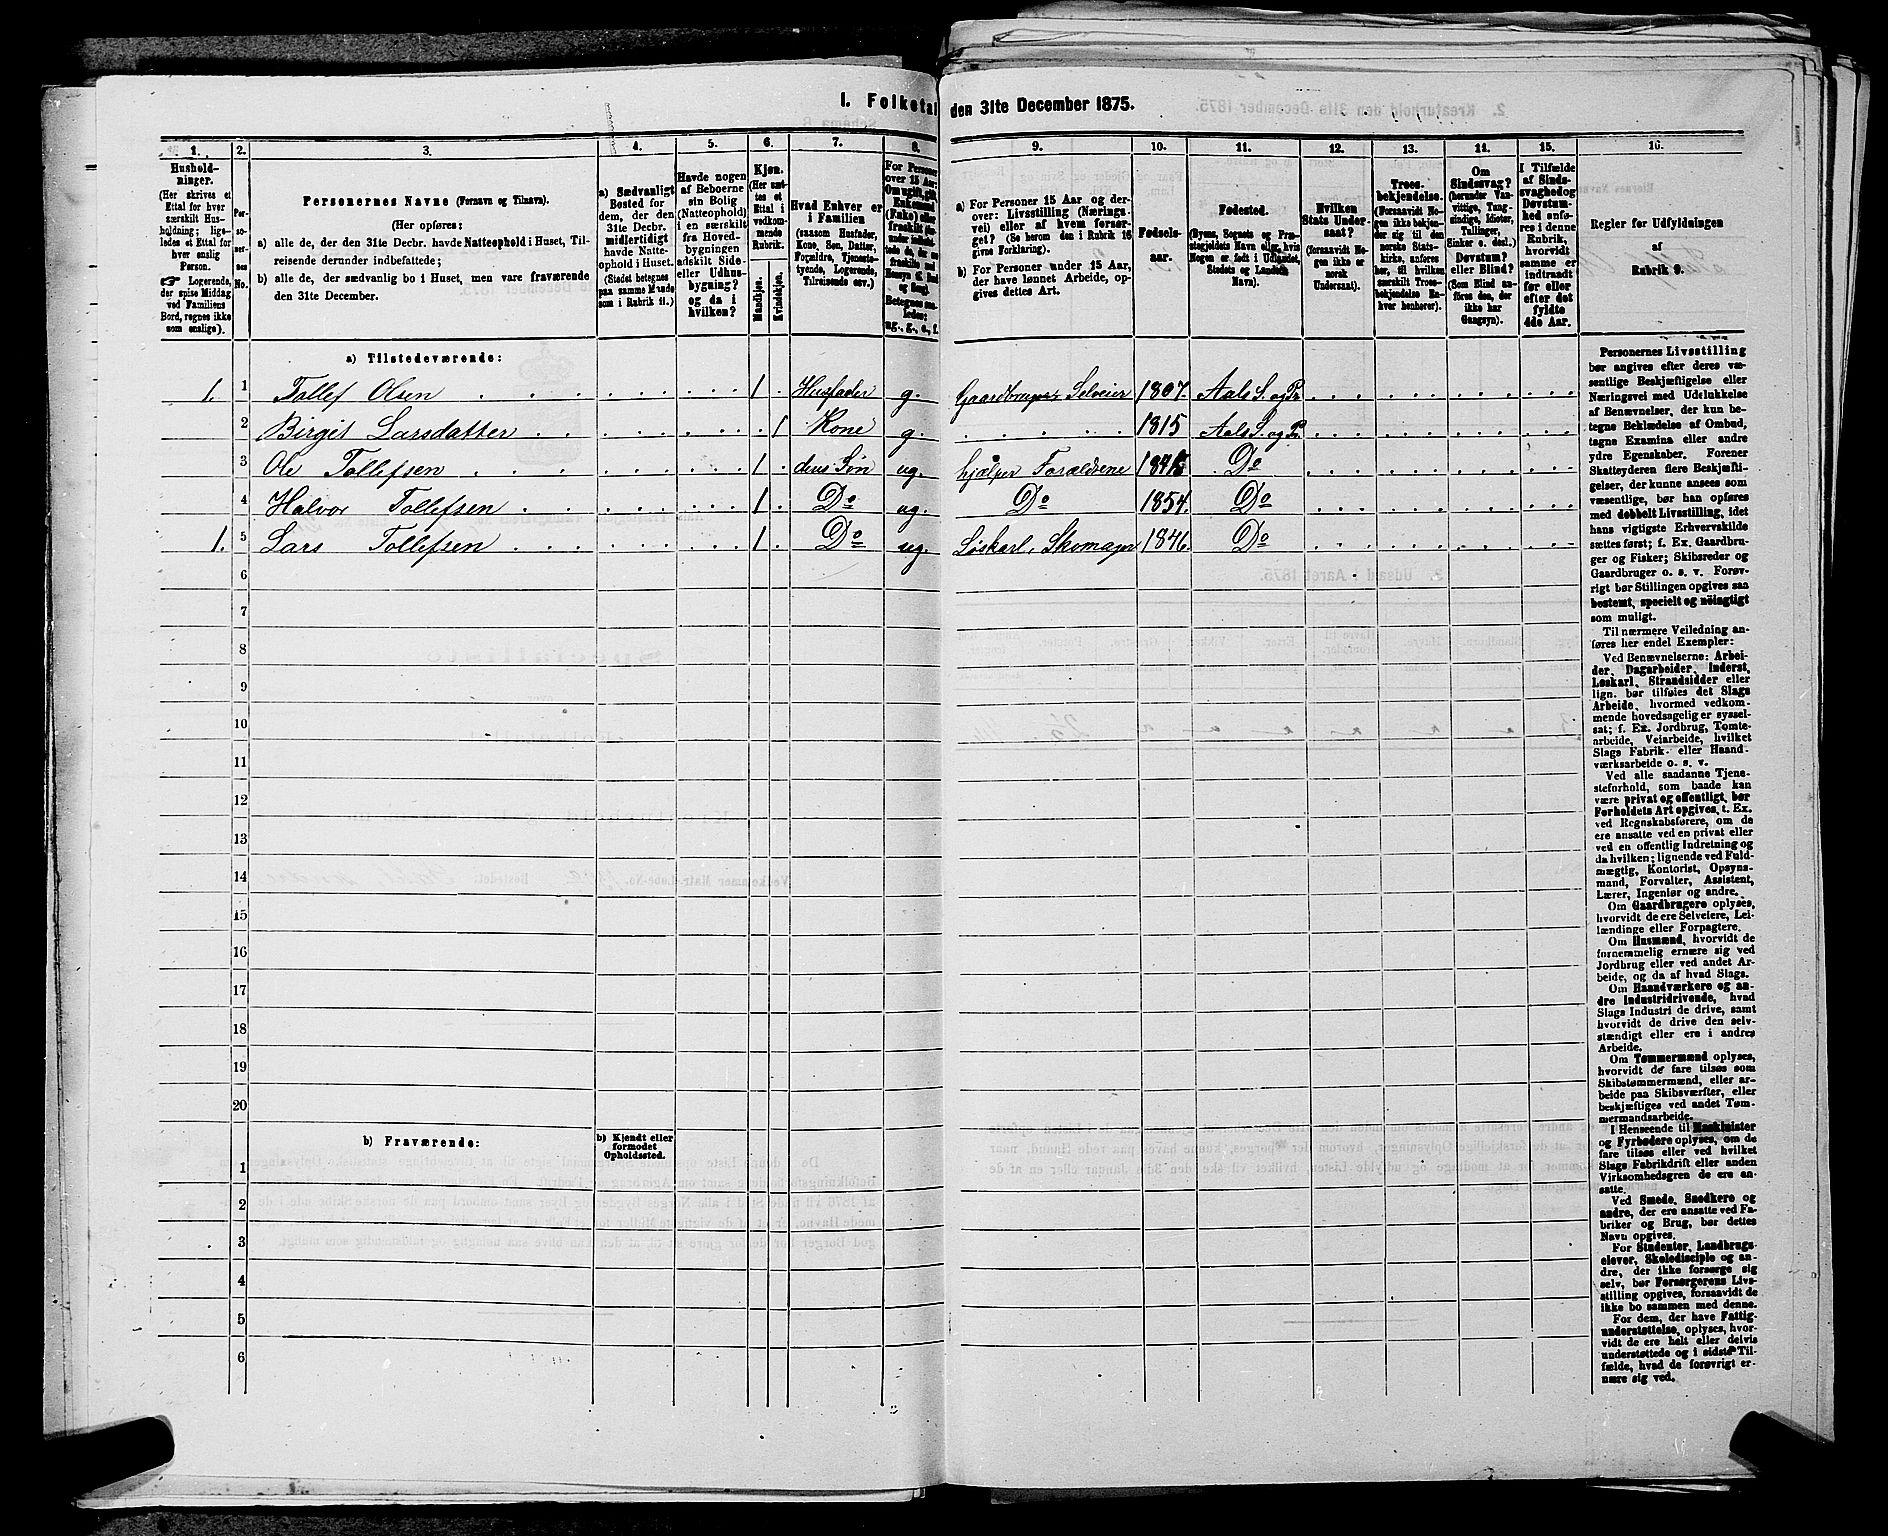 I. Folketal
den 31te December 1875.
1.
2.
3.
4.
5.
6.
7.
8.
9.
10.
11.
12.
13.
14.
15.
16.
Hushold-
ninger.
(Her skrives et
Ettal for hver
særskilt Hus-
holdning; lige-
ledes et Ettal for
hver enslig
Person.
☞ Logerende,
der spise Middag
ved Familiens
Bord, regnes ikke
som enslige).
Per-
soner-
nes
No.
Personernes Navne (Fornavn og Tilnavn).
(Her opføres:
a) alle de, der den 31te Decbr. havde Natteophold i Huset, Til-
reisende derunder indbefattede;
b) alle de, der sædvanlig bo i Huset, men vare fraværende
den 31te December.
a) Sædvanligt
Bosted for
dem, der den
31te Decbr.
midlertidigt
havde Natte-
ophold i Huset.
(Stedet betegnes
paa samme Maade
som i Rubrik 11.)
Havde nogen
af Beboerne
sin Bolig
(Natteophold)
i en særskilt
fra Hoved-
bygningen
adskilt Side-
eller Udhus-
bygning?
og da i
hvilken?
Kjøn.
(Her sæt-
tes et
Ettal i
vedkom-
mende
Rubrik.
Mandkjøn.
Kvindekjøn.
Hvad Enhver er
i Familien
(saasom Husfader,
Kone, Søn, Datter,
Forældre, Tjeneste-
tyende, Logerende,
Tilreisende osv.)
For Personer
over 15 Aar:
Om ugift, gift,
Enkemand
(Enke) eller
fraskilt
a) For Personer 15 Aar og der-
over: Livsstilling (Nærings-
vei) eller af hvem forsør-
get? (Se herom den i Rubrik 16
givne Forklaring).
b) For Personer under 15 Aar,
der have lønnet Arbeide, op-
gives dettes Art.
Fødsels-
aar.
Fødested.
(Byens, Sognets og Præ-
stegjeldets Navn eller, hvis
Nogen er født i Udlandet,
Stedets og Landets
Navn).
Hvilken
Stats Under-
saat?
(forsaavidt No-
gen ikke er
norsk
Undersaat).
Troes-
bekjendelse.
(Forsaavidt No-
gen ikke bekjen-
der sig til den
norske Stats-
kirke, anføres
her, til hvilken
særskilt Troes-
bekjendelse En-
hver henhører).
Om
Sindssvag?
(herunder Van-
vittige, Tung-
sindige, Idioter,
Tullinger,
Sinker o. desl.)
Døvstum?
eller Blind?
(Som Blind an-
føres den, der
ikke har
Gangsyn).
I Tilfælde
af Sinds-
svaghed og
Døvstum-
hed anfø-
res i denne
Rubrik,
hvorvidt
samme er
indtraadt
før eller
efter det
fyldte
4de Aar.
Regler for Udfyldningen
af
Rubrik 9.
a) Tilstedeværende:
1. 1 Tollef Olsen 1 Husfader g. Gaardbruger Selveier 1807. Aals S. og Pr
2 Birgit Larsdatter 1 Kone g. 1815 Aals S. og Pr
3 Ole Tollefsen 1 deres Søn ug. hjælper Forældrene Do
4 Halvor Tollefsen 1 Do ug. Do 1854. Do
1. 5 Lars Tollefsen 1 Do ug. Løskarl, Skomager 1846. Do
6
7
8
9
10
11
12
13
14
15
16
17
18
19
20
b) Fraværende:
b) Kjendt eller
formodet
Opholdssted.
1
2
3
4
5
6
Personernes Livsstilling
bør angives efter deres væ-
sentlige Beskjæftigelse eller
Næringsvei med Udelukkelse
af Benævnelser, der kun be-
tegne Beklædelse af Ombud,
tagne Examina eller andre
ydre Egenskaber. Forener
Skatteyderen flere Beskjæfti-
gelser, der kunne ansees som
væsentlige, bør han opføres
med dobbelt Livsstilling, idet
hans vigtigste Erhvervskilde
sættes først; f. Ex. Gaardbru-
ger og Fisker; Skibsreder og
Gaardbruger o. s. v. Forøv-
rigt bør Stillingen opgives saa
bestemt, specielt og nöiagtigt
som muligt.
Til nærmere Veiledning an-
føres her endel Exempler:
Ved Benævnelserne: Arbei-
der, Dagarbeider, Inderst,
Løskarl, Strandsidder eller
lign. bør tilføies det Slags
Arbeide, hvormed vedkom-
mende hovedsagelig er syssel-
sat; f. Ex. Jordbrug, Tomte-
arbeide, Veiarbeide, hvilket
Slags Fabrik- eller Haand-
værksarbeide o. s. v.
Ved alle saadanne Tjene-
steforhold, som baade kan
være privat og offentligt, bør
Forholdets Art opgives, t. Ex.
ved Regnskabsførere, om de
ere ansatte ved en privat eller
ved en offentlig Indretning og
da hvilken; lignende ved Fuld-
mægtig, Kontorist, Opsyns-
mand, Forvalter, Assistent,
Lærer, Ingeniør og andre.
Om Gaardbrugere oplyses,
hvorvidt de ere Selveiere, Lei-
lændinge eller Forpagtere.
Om Husmænd, hvorvidt de
fornemmelig ernære sig ved
Jordbrug eller ved andet Ar-
beide, og da af hvad Slags.
Om Haandværkere og an-
dre Industridrivende, hvad
Slags Industri de drive, samt
hvorvidt de drive den selv-
stændigt eller ere i andres
Arbeide.
Om Tømmermænd oplyses,
hvorvidt de fare tilsøs som
Skibstømmermænd, eller ar-
beide paa Skibsværfter, eller
beskjæftiges ved andet Tøm-
mermandsarbeide.
I Henseende til Maskinister
og Fyrbødere oplyses, om de
fare tilsøs eller ved hvilket
Slags Fabrikdrift eller anden
Virksomhedsgren de ere an-
satte.
Ved Smede, Snedkere og
andre, der ere ansatte ved Fa-
briker og Brug, bør dettes
Navn opgives.
For Studenter, Landbrugs-
elever, Skoledisciple og an-
dre, der ikke forsørge sig
selv, bør Forsørgerens Livs-
stilling opgives, forsaavidt de
ikke bo sammen med denne.
For dem, der have Fattig-
understøttelse, oplyses, hvor-
vidt de ere helt eller delvis
understøttede og i sidste Til-
fælde, hvad de forøvrigt er-
nære sig ved.